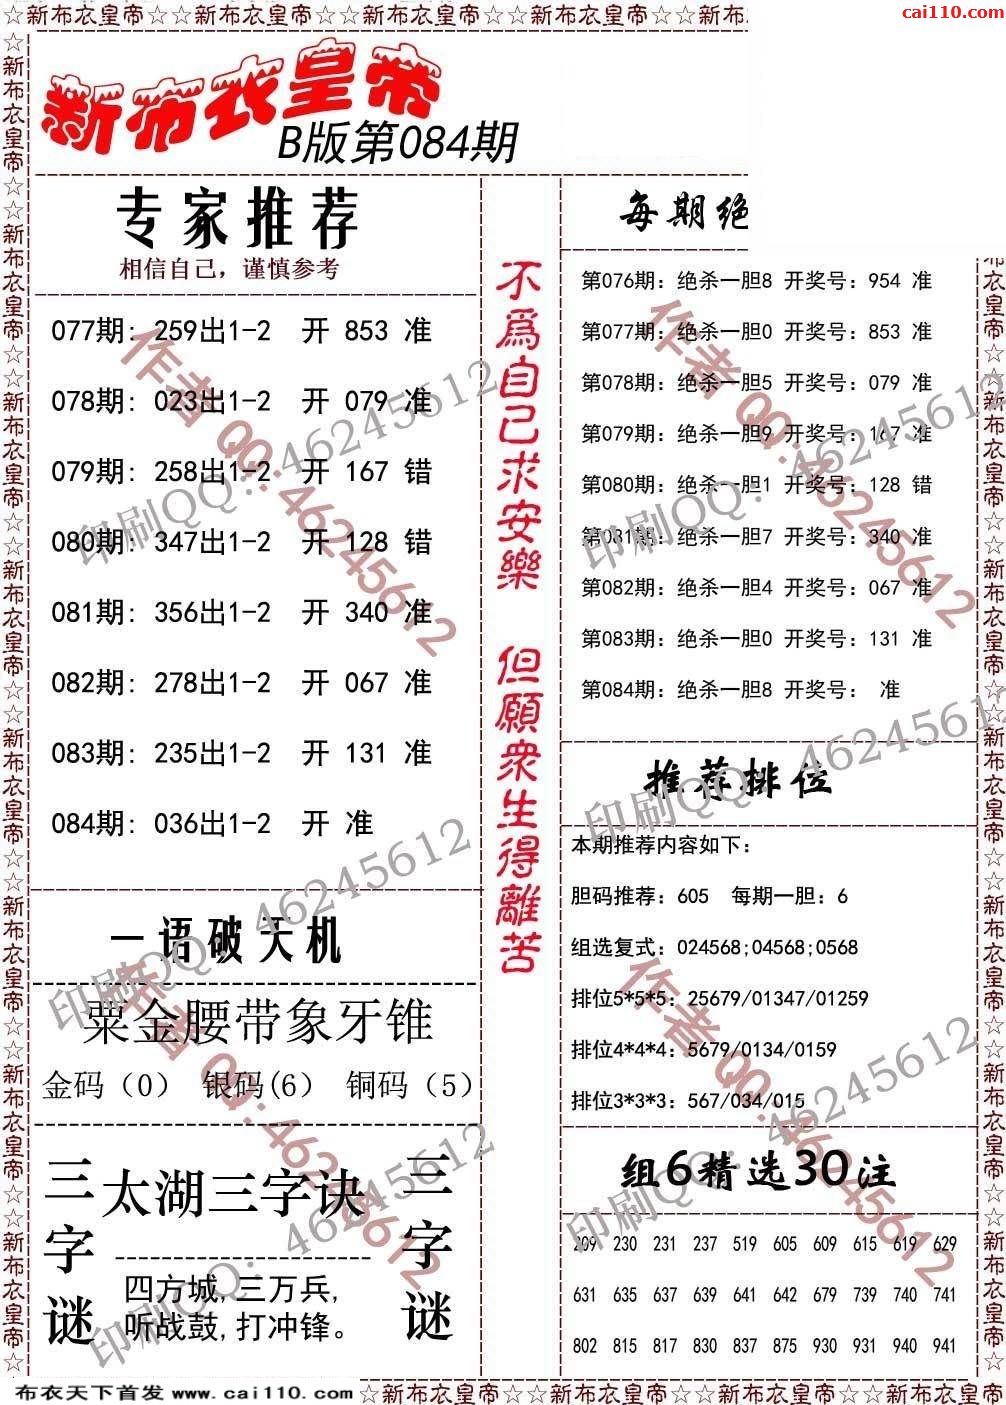 cai110.com
☆新布衣皇帝☆☆新布衣皇帝☆☆新布衣皇帝☆☆新布衣皇帝☆☆新布
新布衣皇帝
B版第084期
专家推荐
相信自己，谨慎参考
077期: 259出1-2 开 853 准
078期: 023出1-2 开 079 准
079期: 258出1-2 开 167 错
080期: 347出1-2 开 128 错
081期: 356出1-2 开 340 准
082期: 278出1-2 开 067 准
083期: 235出1-2 开 131 准
084期: 036出1-2 开 准
一语破天机
粟金腰带象牙锥
金码（0） 银码(6） 铜码（5）
三字谜
太湖三字诀
四方城,三万兵,
听战鼓,打冲锋。
三字谜
不爲自己求安樂 但願衆生得離苦
每期绝
第076期: 绝杀一胆8 开奖号: 954 准
第077期: 绝杀一胆0 开奖号: 853 准
第078期: 绝杀一胆5 开奖号: 079 准
第079期: 绝杀一胆9 开奖号: 167 准
第080期: 绝杀一胆1 开奖号: 128 错
第081期: 绝杀一胆7 开奖号: 340 准
第082期: 绝杀一胆4 开奖号: 067 准
第083期: 绝杀一胆0 开奖号: 131 准
第084期: 绝杀一胆8 开奖号: 准
推荐排位
本期推荐内容如下:
胆码推荐: 605 每期一胆: 6
组选复式: 024568;04568;0568
排位5*5*5: 25679/01347/01259
排位4*4*4: 5679/0134/0159
排位3*3*3: 567/034/015
组6精选30注
209 230 231 237 519 605 609 615 619 629
631 635 637 639 641 642 679 739 740 741
802 815 817 830 837 875 930 931 940 941
作者QQ:46245612
印刷QQ: 46245612
作者QQ:46245612
印刷QQ: 46245612
印刷QQ: 46245612
印刷QQ: 46245612
作者QQ:46245612
作者QQ:46245612
印刷QQ: 46245612
印刷QQ: 46245612
☆新布衣皇帝☆☆新布衣皇帝☆☆新布衣皇帝☆☆新布衣皇帝☆☆新布衣皇帝☆☆新布衣皇帝☆☆新布衣皇帝☆☆新布衣皇帝☆
衣皇帝☆☆新布衣皇帝☆☆新布衣皇帝☆☆新布衣皇帝☆☆新布衣皇帝☆☆新布衣皇帝☆☆新布衣皇帝☆
布衣天下首发 www.cai110.com ☆新布衣皇帝☆☆新布衣皇帝☆☆新布衣皇帝☆☆新布衣皇帝☆